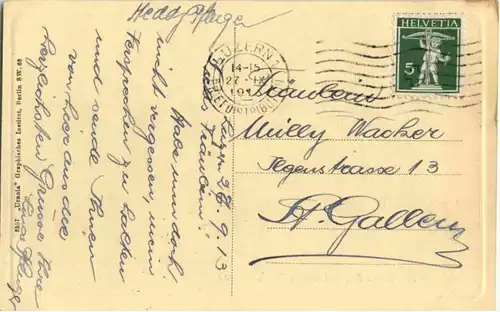 Heddy Pfleger
Luzern 26. 9. 13.
Liebes Fräulein!
Habe nun doch
nicht vergessen, mein
Versprechen zu halten
und sende Ihnen
von hier aus die
herzlichsten Grüsse Ihre
8517 "Urania" Graphisches Institut, Berlin SW. 68
LUZERN 1
14-15
27. IX
HELVETIA
5
Fräulein
Milly Wacker
Ilgenstrasse 13
St. Gallen